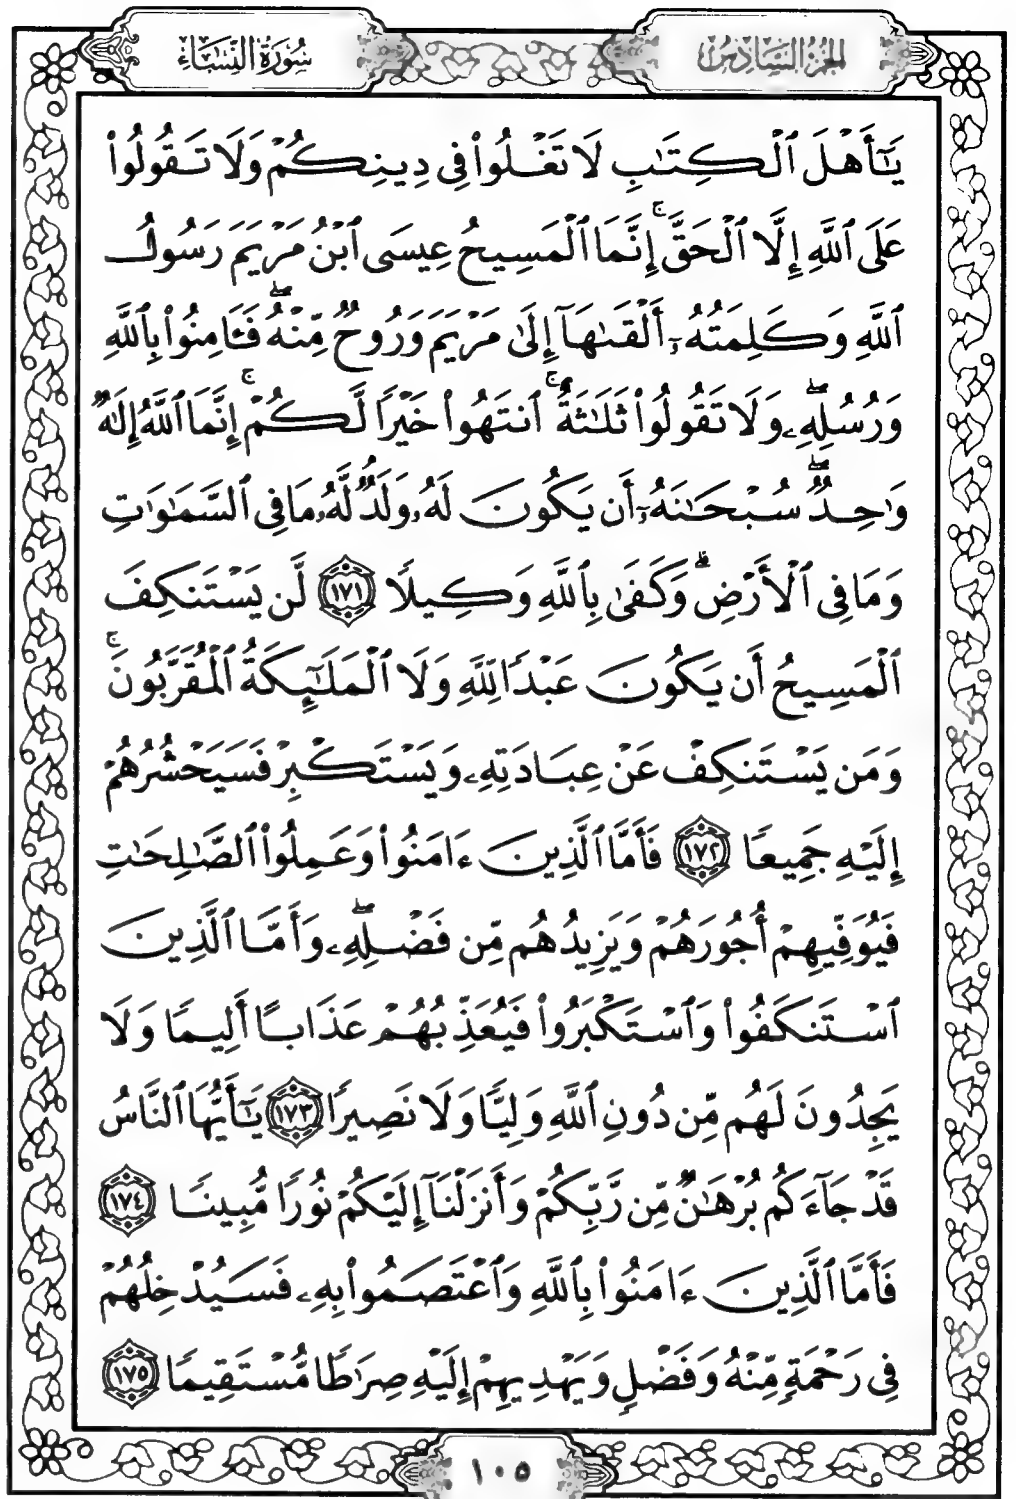 الجزء السادس
سورة النساء
يَٰٓأَهْلَ ٱلْكِتَٰبِ لَا تَغْلُوا۟ فِى دِينِكُمْ وَلَا تَقُولُوا۟
عَلَى ٱللَّهِ إِلَّا ٱلْحَقَّ ۚ إِنَّمَا ٱلْمَسِيحُ عِيسَى ٱبْنُ مَرْيَمَ رَسُولُ
ٱللَّهِ وَكَلِمَتُهُۥٓ أَلْقَىٰهَآ إِلَىٰ مَرْيَمَ وَرُوحٌ مِّنْهُ ۖ فَـَٔامِنُوا۟ بِٱللَّهِ
وَرُسُلِهِۦ ۖ وَلَا تَقُولُوا۟ ثَلَٰثَةٌ ۚ ٱنتَهُوا۟ خَيْرًا لَّكُمْ ۚ إِنَّمَا ٱللَّهُ إِلَٰهٌ
وَٰحِدٌ ۖ سُبْحَٰنَهُۥٓ أَن يَكُونَ لَهُۥ وَلَدٌ ۘ لَّهُۥ مَا فِى ٱلسَّمَٰوَٰتِ
وَمَا فِى ٱلْأَرْضِ ۗ وَكَفَىٰ بِٱللَّهِ وَكِيلًا ١٧١ لَّن يَسْتَنكِفَ
ٱلْمَسِيحُ أَن يَكُونَ عَبْدًا لِّلَّهِ وَلَا ٱلْمَلَٰٓئِكَةُ ٱلْمُقَرَّبُونَ ۚ
وَمَن يَسْتَنكِفْ عَنْ عِبَادَتِهِۦ وَيَسْتَكْبِرْ فَسَيَحْشُرُهُمْ
إِلَيْهِ جَمِيعًا ١٧٢ فَأَمَّا ٱلَّذِينَ ءَامَنُوا۟ وَعَمِلُوا۟ ٱلصَّٰلِحَٰتِ
فَيُوَفِّيهِمْ أُجُورَهُمْ وَيَزِيدُهُم مِّن فَضْلِهِۦ ۖ وَأَمَّا ٱلَّذِينَ
ٱسْتَنكَفُوا۟ وَٱسْتَكْبَرُوا۟ فَيُعَذِّبُهُمْ عَذَابًا أَلِيمًا وَلَا
يَجِدُونَ لَهُم مِّن دُونِ ٱللَّهِ وَلِيًّا وَلَا نَصِيرًا ١٧٣ يَٰٓأَيُّهَا ٱلنَّاسُ
قَدْ جَآءَكُم بُرْهَٰنٌ مِّن رَّبِّكُمْ وَأَنزَلْنَآ إِلَيْكُمْ نُورًا مُّبِينًا ١٧٤
فَأَمَّا ٱلَّذِينَ ءَامَنُوا۟ بِٱللَّهِ وَٱعْتَصَمُوا۟ بِهِۦ فَسَيُدْخِلُهُمْ
فِى رَحْمَةٍ مِّنْهُ وَفَضْلٍ وَيَهْدِيهِمْ إِلَيْهِ صِرَٰطًا مُّسْتَقِيمًا ١٧٥
١٠٥